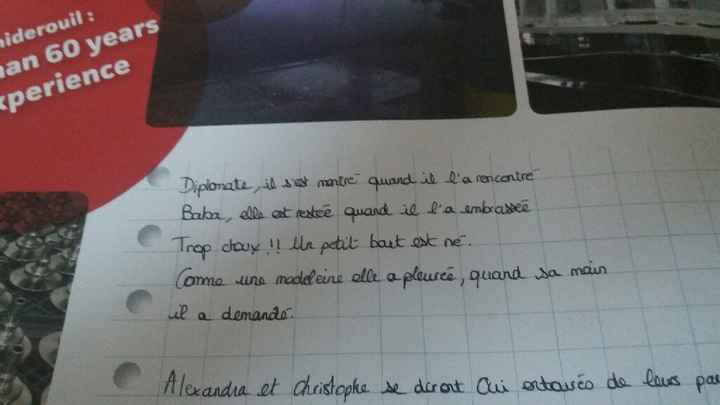 iderouil :
an 60 years
xperience
Diplomate, il s'est montré quand il l'a rencontré
Baba, elle est restée quand il l'a embrassée
Trop choux !! Un petit bout est né.
Comme une madeleine elle a pleurée, quand sa main
il a demandé.
Alexandra et Christophe se diront Oui entourés de leurs pa